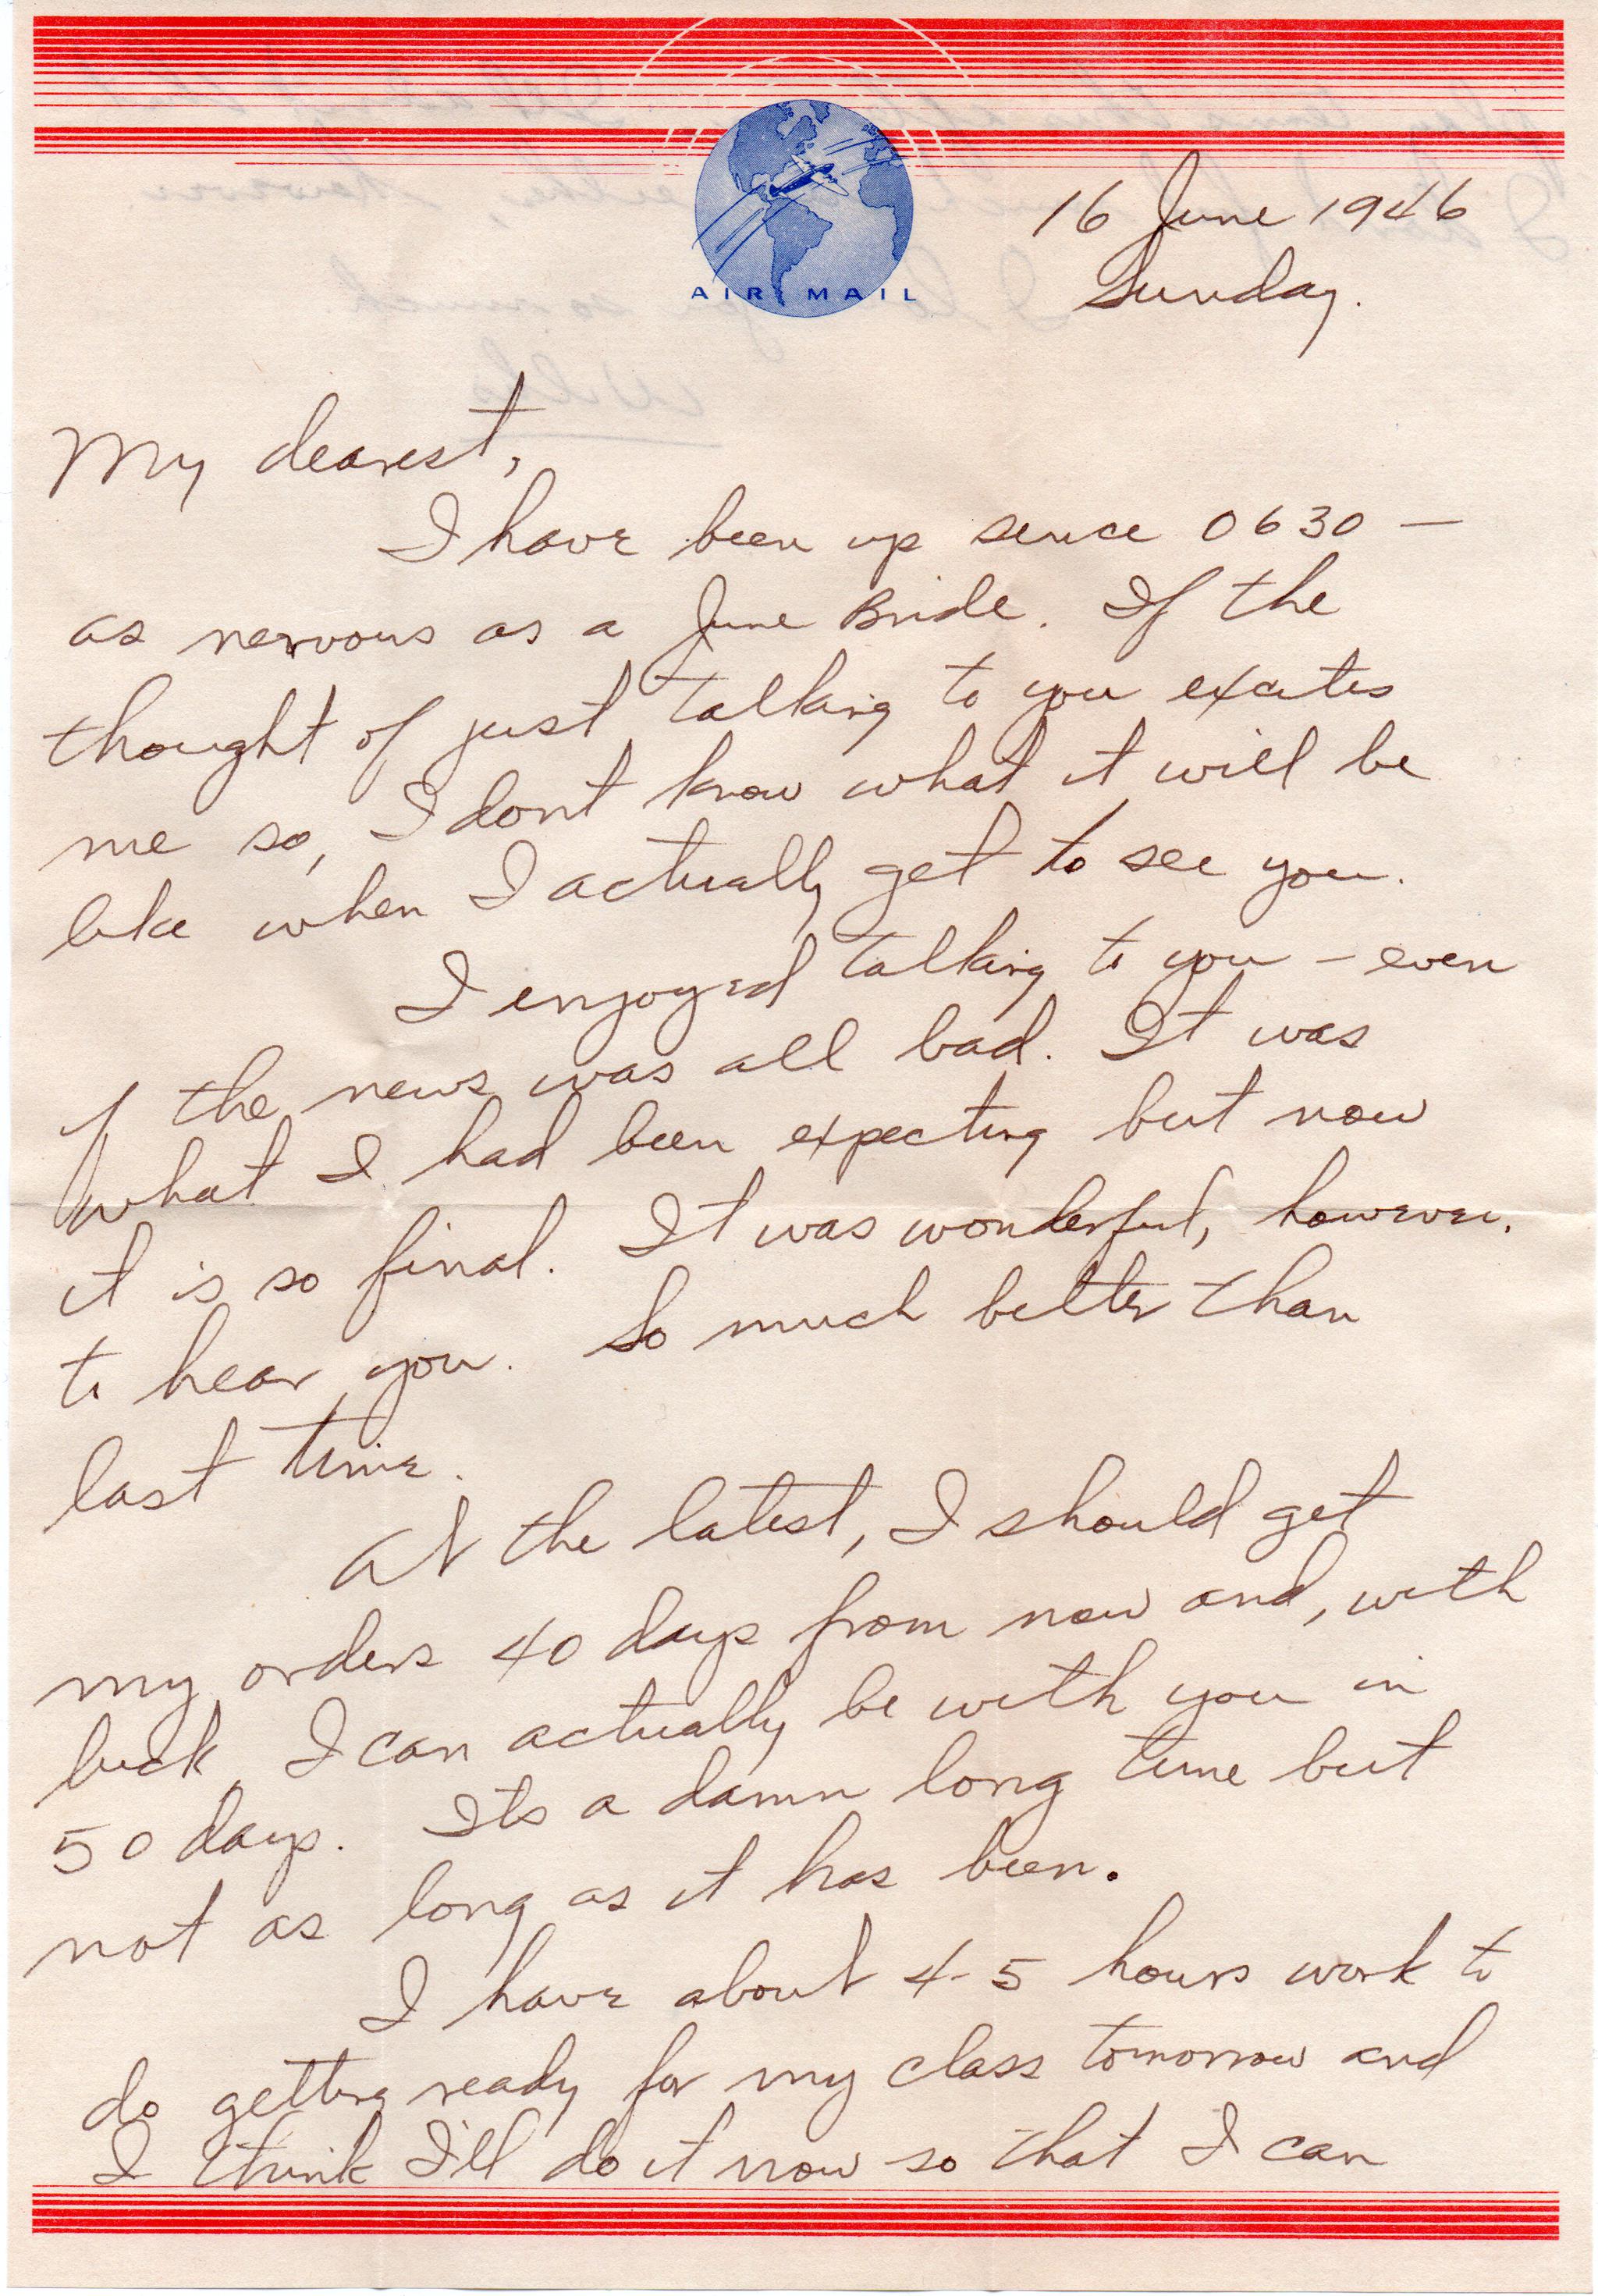 AIR MAIL
16 June 1946
Sunday.
My dearest,
I have been up since 0630 —
as nervous as a June Bride. If the
thought of just talking to you excites
me so, I dont know what it will be
like when I actually get to see you.
I enjoyed talking to you – even
if the news was all bad. It was
what I had been expecting but now
it is so final. It was wonderful, however,
to hear you. So much better than
last time.
At the latest, I should get
my orders 40 days from now and, with
luck, I can actually be with you in
50 days. Its a damn long time but
not as long as it has been.
I have about 4-5 hours work to
do getting ready for my class tomorrow and
I think I'll do it now so that I can